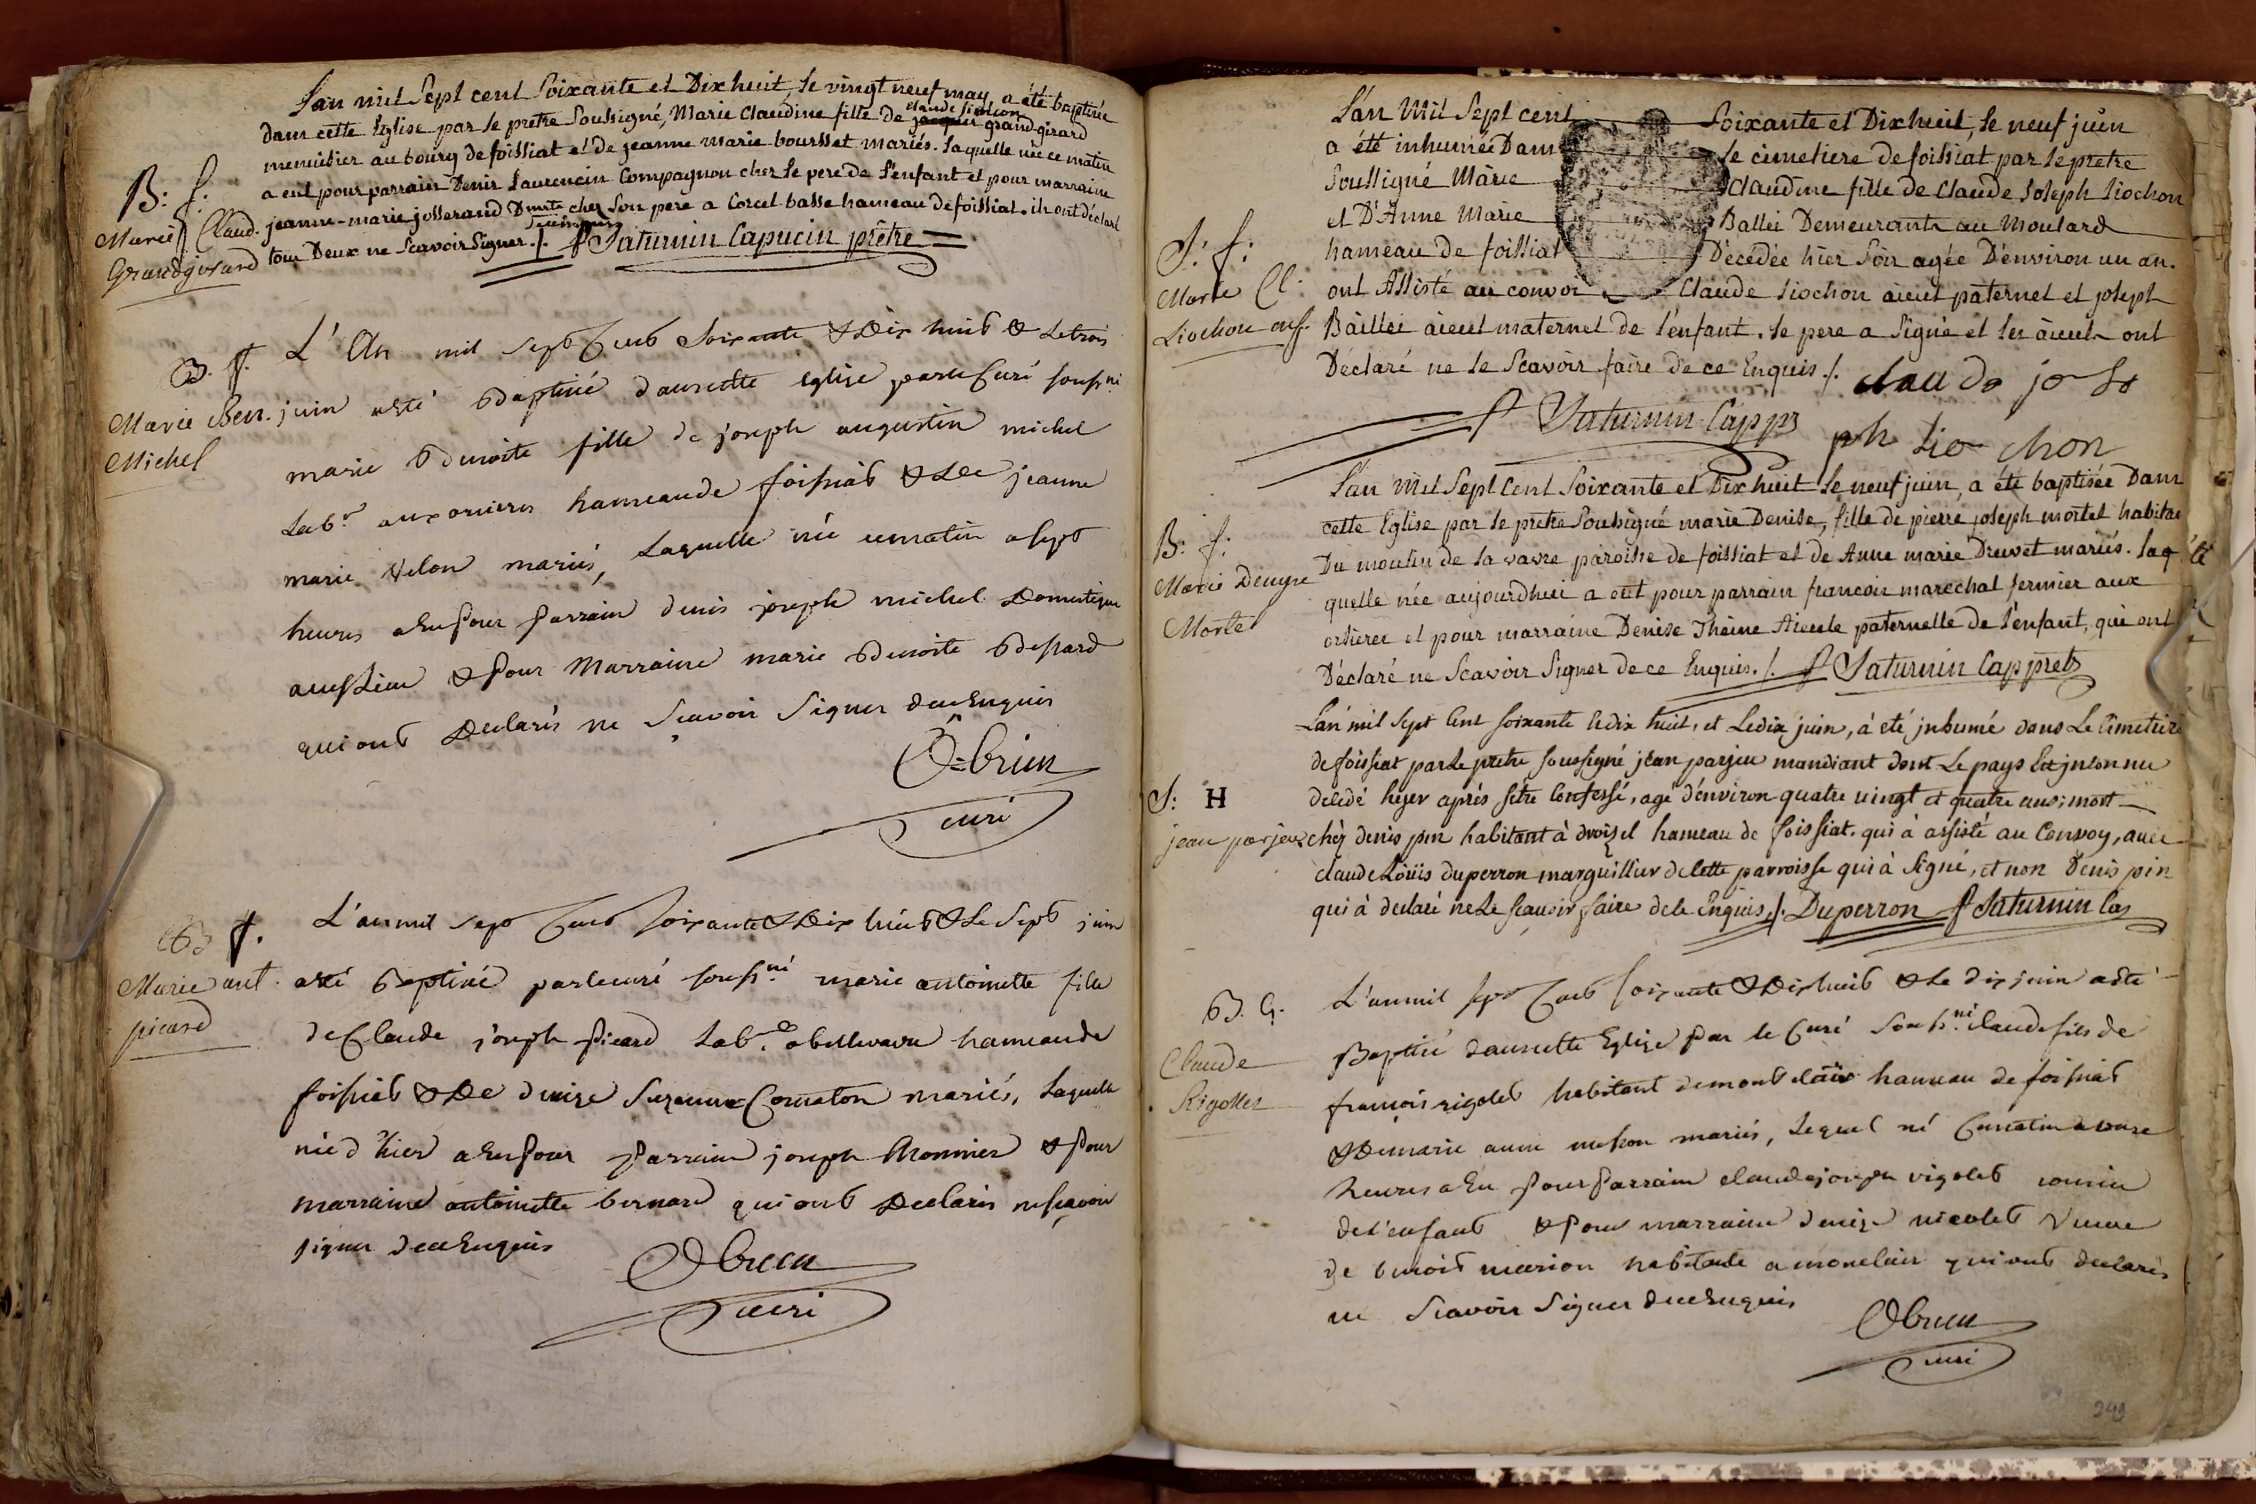 L'an mil Sept cent Soixante et Dixhuit, le vingt neuf may a été baptisée
Dans cette Eglise par le pretre Soussigné, Marie Claudine fille de jacques grandgirard
menuisier au bourg de foissiat et de jeanne marie boursset mariés. laquelle née ce matin
a eut pour parrain Denis Laurencin Compagnon chez le pere de l'enfant et pour marraine
B: f:
Marie Claud.
Grandgirard
jeanne-marie josserand Dmte chez Son pere a Corcel basse hameau de foissiat. ils ont déclaré
tous Deux ne Scavoir Signer ./. f Saturnin Capucin prêtre
B. f.
Marie Ben.
Michel
L'An mil sept Cent Soixante & Dix huit & Le trois
juin a esté Baptisé dans cette eglise par le Curé souss.né
marie Benoite fille de joseph augustin michel
Lab.r aux orcieres hameau de foissiat & De jeanne
marie velon mariés, Laquelle née ce matin a sept
heures a Eu pour Parrain denis joseph michel Domestique
au & Pour Marraine marie Benoite
qui ont Declarés ne Scavoir Signer de ce Enquis
O=brien
curé
B f.
Marie ant.
picard
L'an mil sept Cent soixante & Dix huit & Le Sept juin
a été Baptisé par le curé souss.né marie antoinette fille
de Claude joseph Picard Lab.r a bellevavre hameau de
foissiat & De denize Suzanne Cometon mariés, Laquelle
née d'hier a Eu pour Parrain joseph Monnier & Pour
marraine antoinette bernard qui ont Declarés ne sçavoir
signer de ce Enquis
Obrien
curé
S: f:
Marie Cl:
Liochon enf.
L'an Mil Sept cent Soixante et Dixhuit, le neuf juin
a été inhumée Dans le cimetiere de foissiat par le pretre
Soussigné Marie Claudine fille de Claude Joseph Liochon
et D'Anne Marie Ballei Demeurants au Moulard
hameau de foissiat Décédée hier Soir agée D'environ un an.
ont Assisté au convoi Claude Liochon aieul paternel et joseph
Baillei aieul maternel de l'enfant. le pere a Signé et les aieuls ont
Déclaré ne le Scavoir faire de ce Enquis ./. claude jose
f Saturnin Cap prs ph lio chon
B: f:
Marie Denyse
Mortel
L'an Mil Sept Cent Soixante et Dixhuit le neuf juin, a été baptisée Dans
cette Eglise par le pretre Soussigné marie Denise, fille de pierre joseph mortel habitan
Du moulin de la vavre paroisse de foissiat et de Anne marie Druvet mariés. laq
quelle née aujourdhui a eut pour parrain francois marechal fermier aux
orcieres et pour marraine Denise Theine Aieule paternelle de l'enfant, qui ont
Déclaré ne Scavoir Signer de ce Enquis ./. f Saturnin Cap prets
S: H
jean parjeu
L'an mil sept Cent soixante et dix huit, et Le dix juin, à eté jnhumé dans Le Cimetiere
de foissiat par Le pretre soussigné jean parjeu mandiant dont Le pays Est jnconnu
decedé hyer aprés sétre Confessé, agé d'environ quatre vingt et quatre ans; mort
chez denis pin habitant à avoizel hameau de foissiat. qui à assisté au Convoy, avec
claude Loüis duperron marguillier de Cette parroisse qui à Signé, et non Denis pin
qui à declaré ne Le sçavoir faire de Ce Enquis ./. Duperron f Saturnin Cap
B. G.
Claude
Rigollet
L'an mil sept Cent soixante & Dix huit & Le dix juin a esté
Baptisé dans cette Eglize Par le Curé Souss.né Claude fils de
francois rigolet habitant de mont clair hameau de foissiat
& De marie anne mariés, Lequel né Ce matin a onze
heures a Eu Pour Parrain claude joseph rigolet cousin
de L'enfant & Pour marraine denize nicolet Veuve
de benoit marion habitante a monclair qui ont declarés
ne Scavoir Signer de ce Enquis
Obrien
curé
249